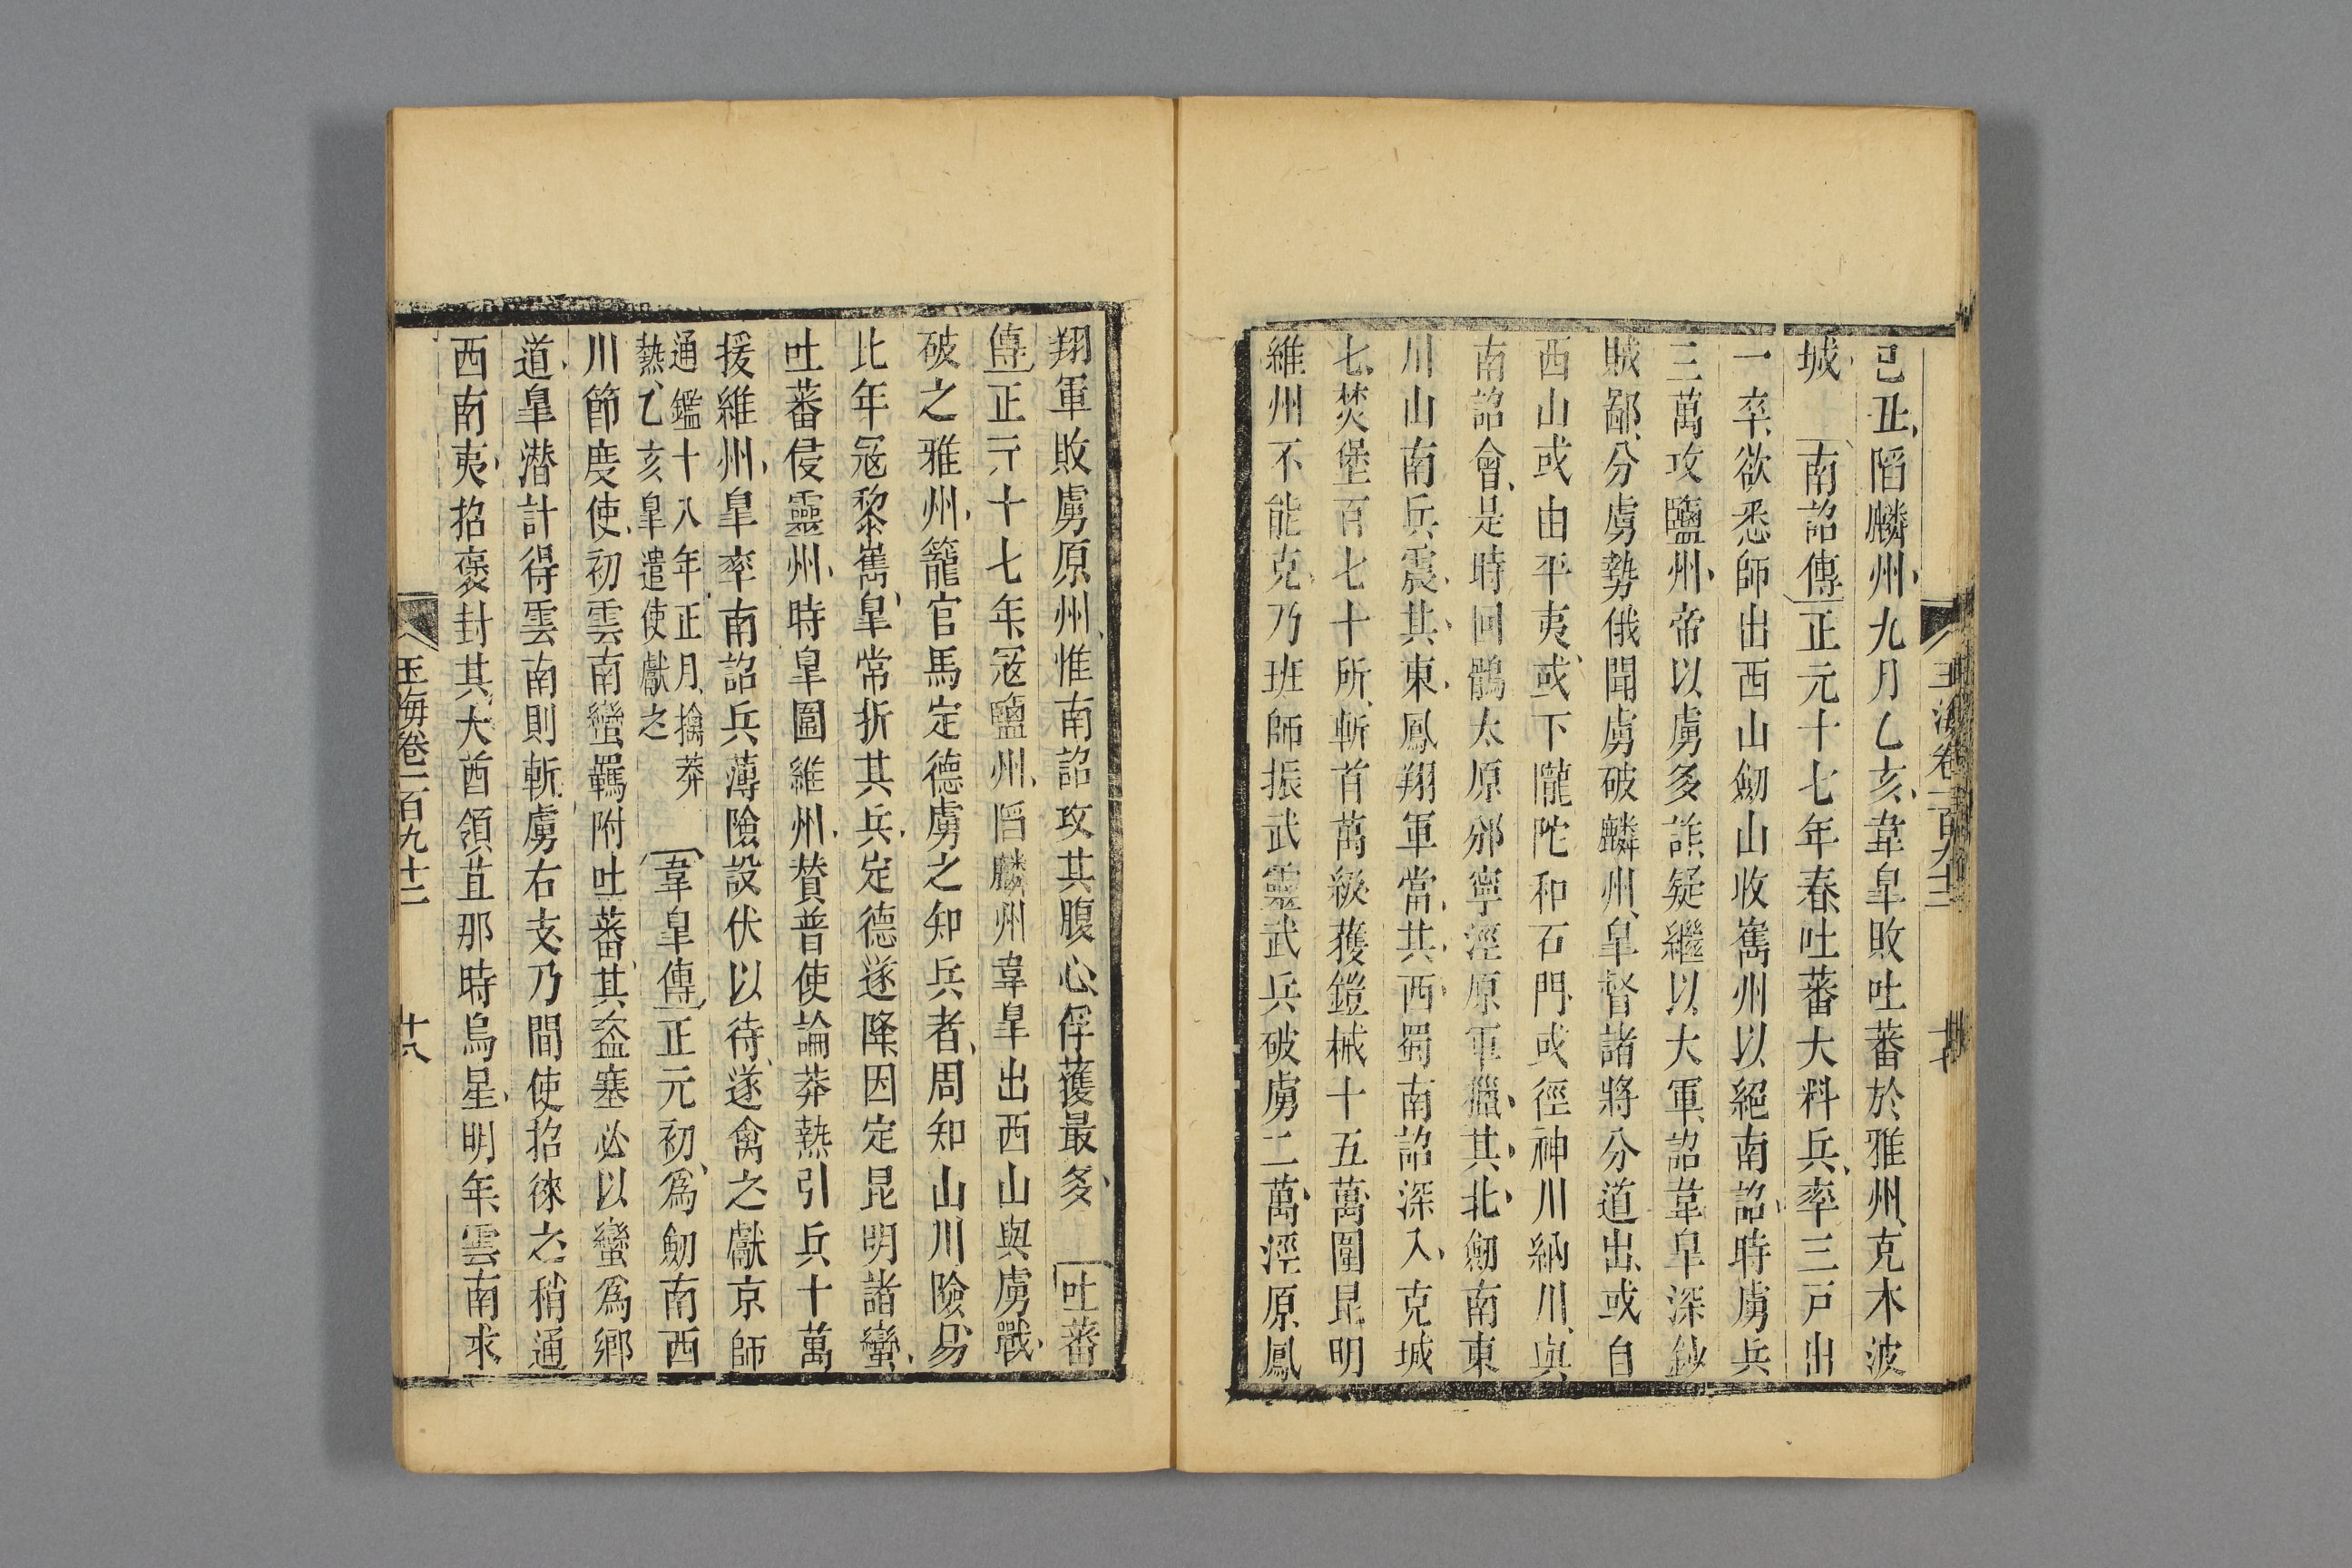 玉海卷一百九十二
己丑陷麟州九月乙亥韋臯敗吐蕃於雅州克木波
城　南詔傳正元十七年春吐蕃大料兵率三戶出
一卒欲悉師出西山劒山收嶲州以絕南詔時虜兵
三萬攻鹽州帝以虜多詐疑繼以大軍詔韋臯深鈔
賊鄙分虜勢俄聞虜破麟州臯督諸將分道出或自
西山或由平夷或下隴陀和石門或徑神川納川與
南詔會是時回鶻太原邠寧涇原軍獵其北劒南東
川山南兵震其東鳳翔軍當其西蜀南詔深入克城
七焚堡百七十所斬首萬級獲鎧械十五萬圍昆明
維州不能克乃班師振武靈武兵破虜二萬涇原鳳
翔軍敗虜原州惟南詔攻其腹心俘獲最多　吐蕃
傳正元十七年寇鹽州陷麟州韋臯出西山與虜戰
破之雅州籠官馬定德虜之知兵者周知山川險易
比年寇黎嶲臯常折其兵定德遂降因定昆明諸蠻
吐蕃侵靈州時臯圍維州贊普使論莽熱引兵十萬
援維州臯率南詔兵薄險設伏以待遂禽之獻京師
通鑑十八年正月擒莽
熱乙亥臯遣使獻之　韋臯傳正元初爲劒南西
川節度使初雲南蠻羈附吐蕃其盜塞必以蠻爲鄉
道臯潛計得雲南則斬虜右支乃間使招徠之稍通
西南夷招褒封其大酋領苴那時烏星明年雲南求
玉海卷一百九十二　十八